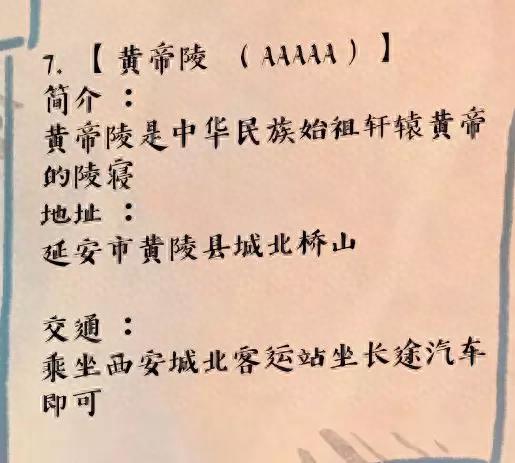 7. 【 黄帝陵 （AAAAA）】
简介 ：
黄帝陵是中华民族始祖轩辕黄帝
的陵寝
地址 ：
延安市黄陵县城北桥山

交通 ：
乘坐西安城北客运站坐长途汽车
即可